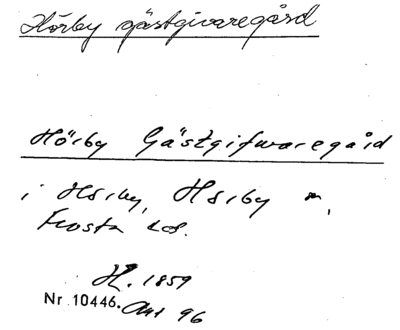 Hörby gästgivaregård
Hörby Gästgifwaregård
i Hörby, Hörby
Frosta hd.
H. 1859
Nr 10446. 96